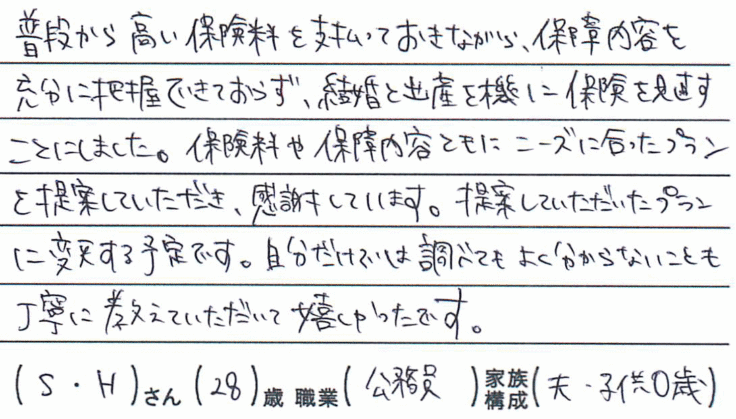 普段から高い保険料を支払っておきながら、保障内容を
充分に把握できておらず、結婚と出産を機に保険を見直す
ことにしました。保険料や保障内容ともにニーズに合ったプラン
を提案していただき、感謝しています。提案していただいたプラン
に変更する予定です。自分だけでは調べてもよく分からないことも
丁寧に教えていただいて嬉しかったです。
(S・H)さん(28)歳 職業(公務員)家族構成(夫・子供0歳)